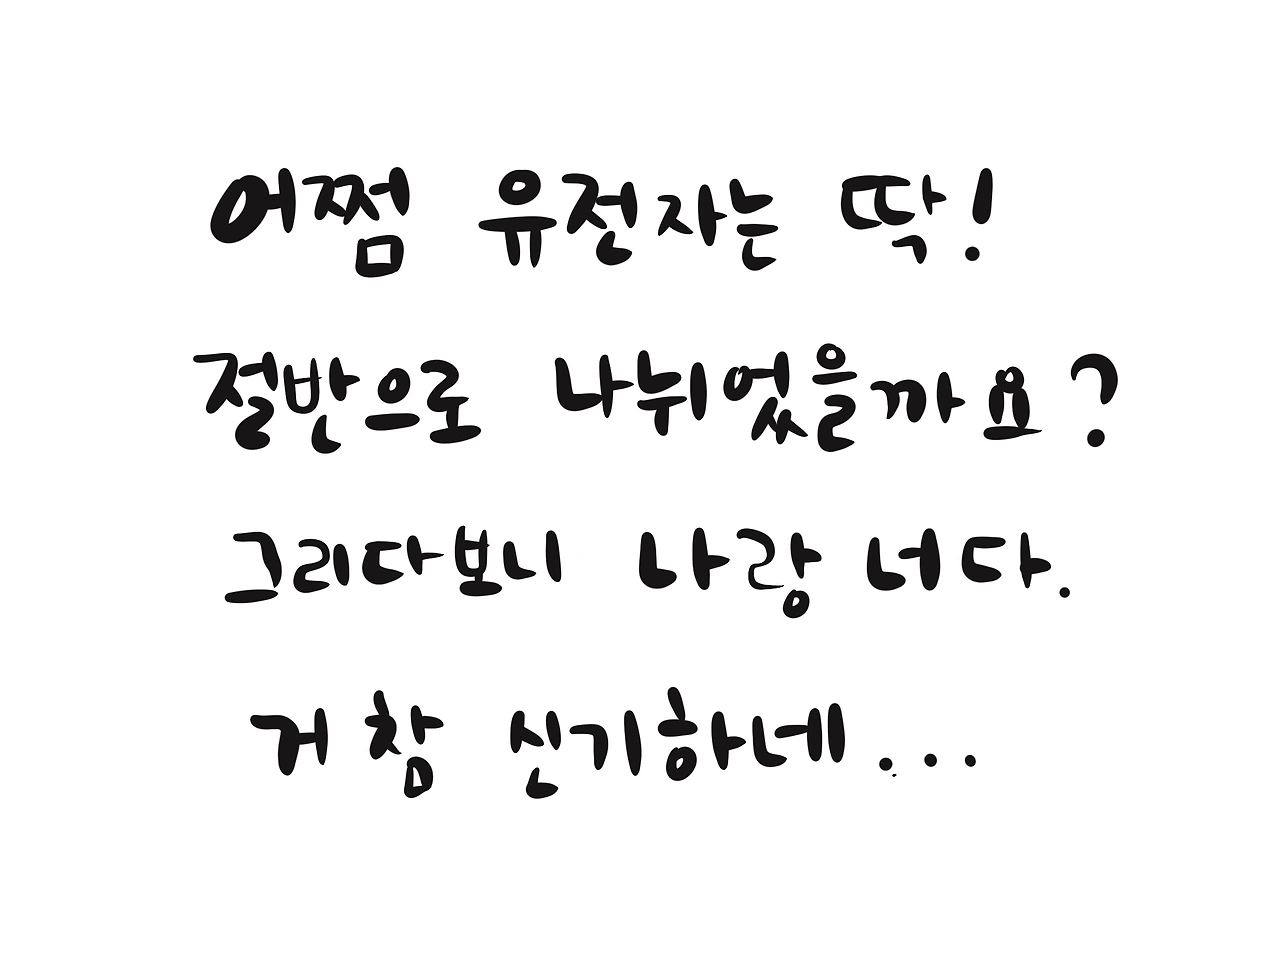 어쩜 유전자는 딱!
절반으로 나뉘었을까요?
그리다보니 나랑 너다.
거 참 신기하네...